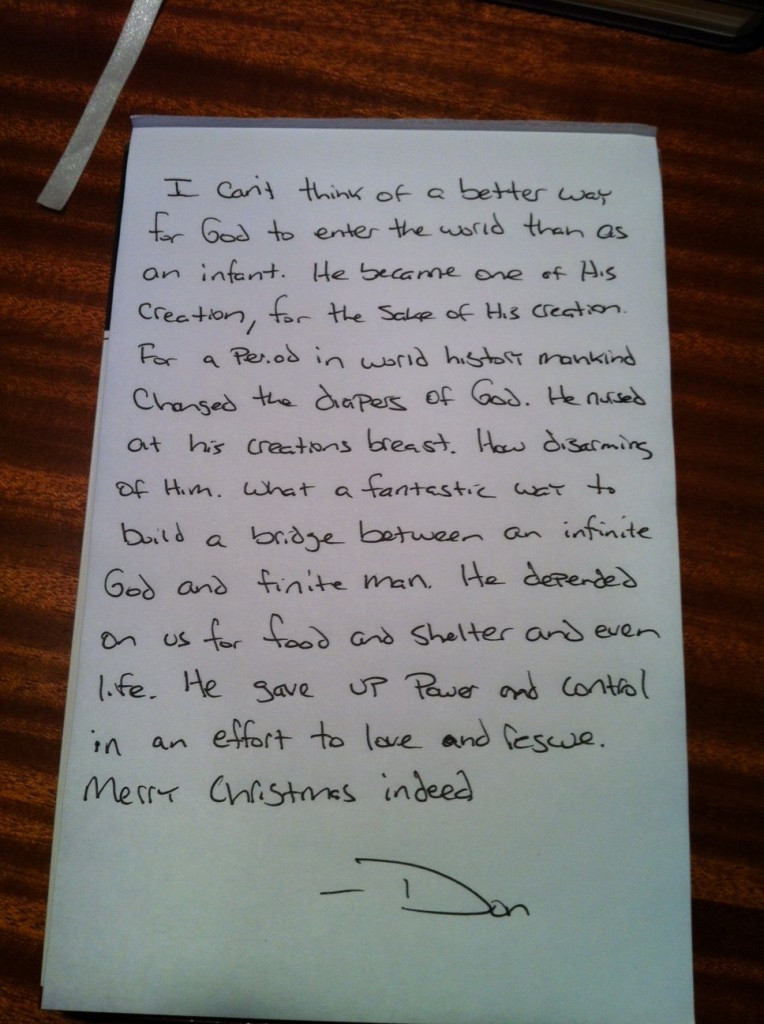 I can't think of a better way
for God to enter the world than as
an infant. He became one of His
creation, for the sake of His creation.
For a Period in world history mankind
Changed the diapers of God. He nursed
at his creations breast. How disarming
of Him. What a fantastic way to
build a bridge between an infinite
God and finite man. He depended
on us for food and shelter and even
life. He gave up Power and control
in an effort to love and rescue.
Merry Christmas indeed
- Don